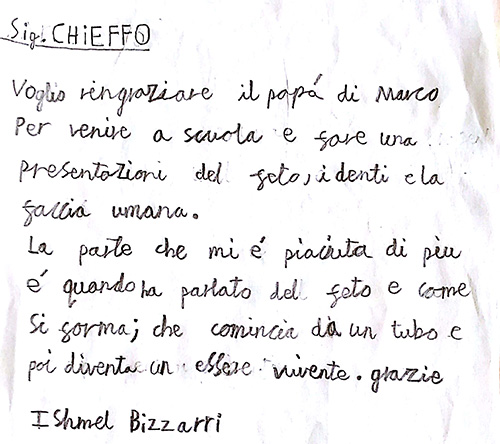 Sig. CHIEFFO
Voglio ringraziare il papá di Marco
Per venire a scuola e fare una
presentazioni del feto, i denti e la
faccia umana.
La parte che mi é piaciuta di piu
é quando ha parlato del feto e come
si forma; che comincia da un tubo e
poi diventa un essere vivente. grazie
IShmel Bizzarri